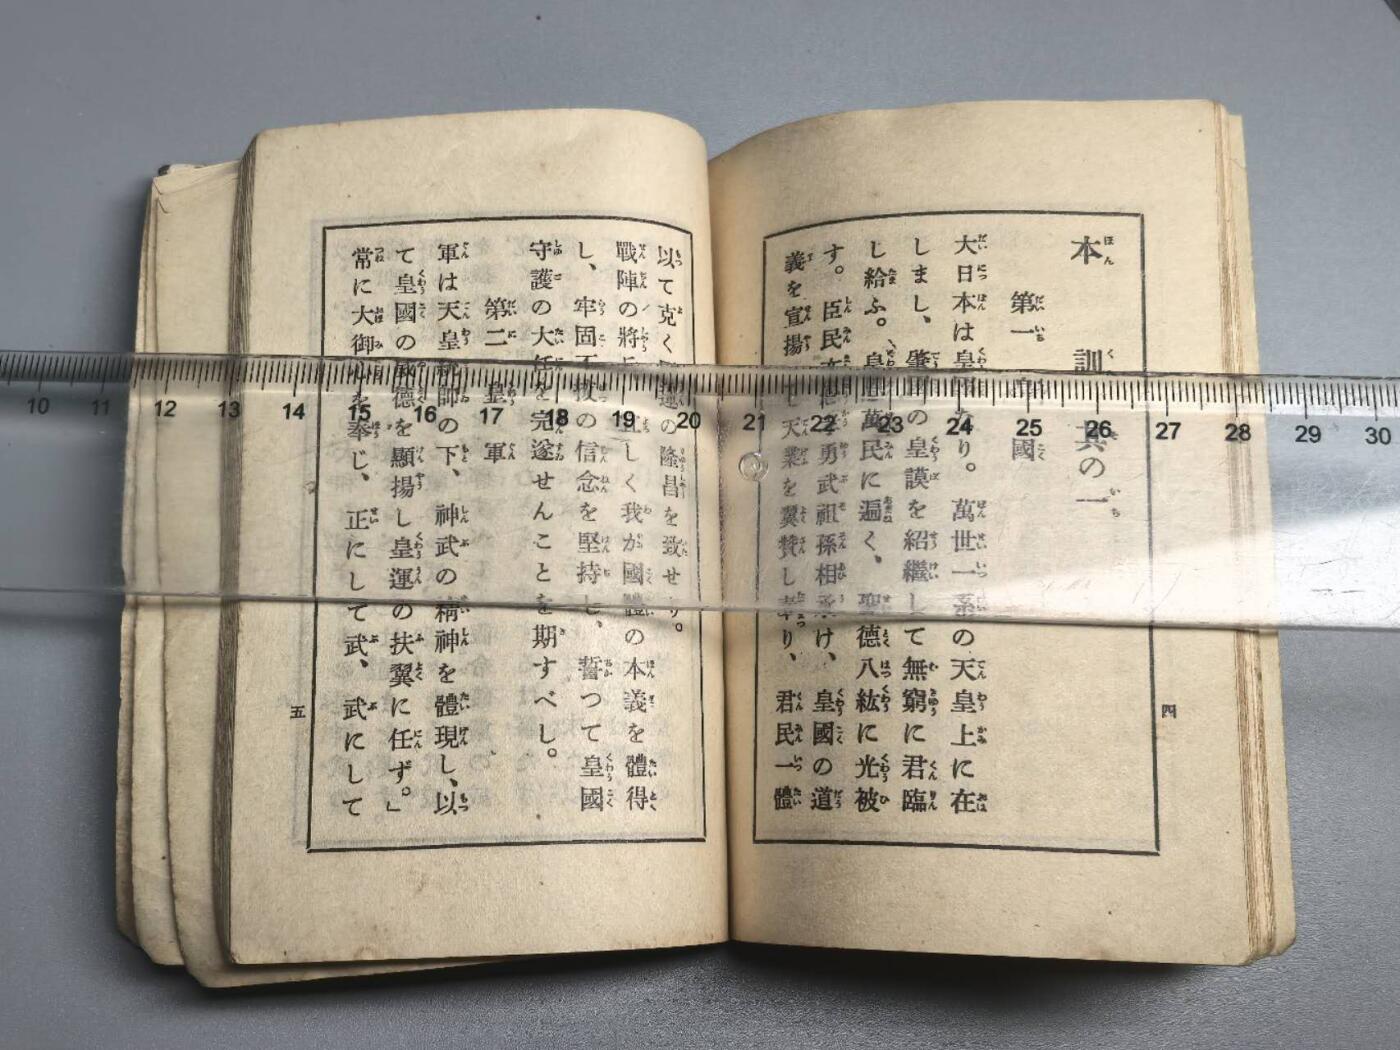 本訓 其の一
第一 皇國
大日本は皇國なり。萬世一系の天皇上に在
しまし、肇國の皇謨を紹繼して無窮に君臨
し給ふ。皇恩萬民に遍く、聖德八紘に光被
す。臣民亦忠孝勇武祖孫相承け、皇國の道
義を宣揚して天業を翼贊し奉り、君民一體
四
以て克く國運の隆昌を致せり。
戰陣の將兵、宜しく我が國體の本義を體得
し、牢固不拔の信念を堅持し、誓つて皇國
守護の大任を完遂せんことを期すべし。
第二 皇軍
軍は天皇統帥の下、神武の精神を體現し、以
て皇國の威德を顯揚し皇運の扶翼に任ず。」
常に大御心を奉じ、正にして武、武にして
五
10 11 12 13 14 15 16 17 18 19 20 21 22 23 24 25 26 27 28 29 30